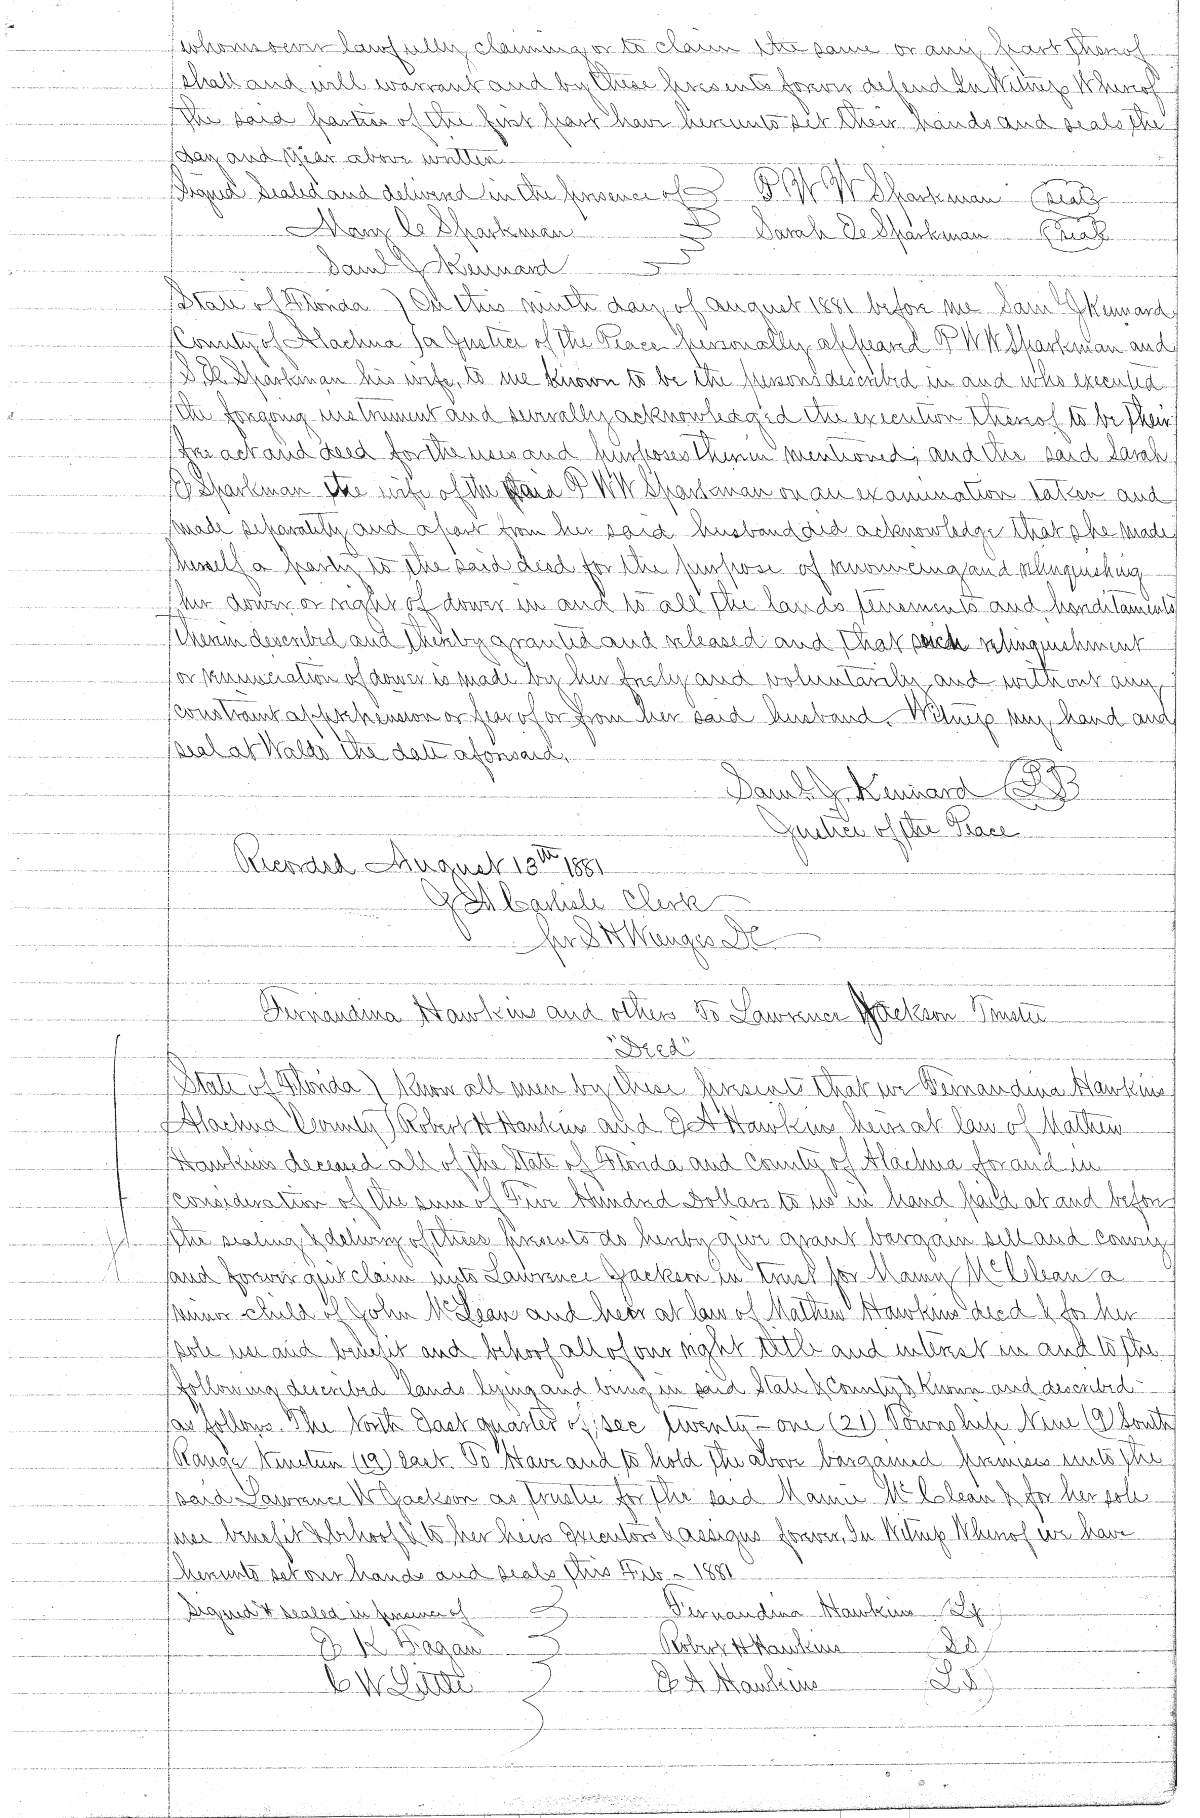 whomsoever lawfully claiming or to claim the same or any part thereof
shall and will warrant and by these presents forever defend In Witness Whereof
the said parties of the first part have hereunto set their hands and seals the
day and year above written
Signed Sealed and delivered in the presence of P W W Sparkman (seal)
Mary E Sparkman Sarah E Sparkman (seal)
Saml J Kennard
State of Florida ) On this ninth day of august 1881 before me Saml J Kennard
County of Alachua ) a Justice of the Peace personally appeared P W W Sparkman and
S. E. Sparkman his wife, to me known to be the persons described in and who executed
the forgoing instrument and severally acknowledged the execution thereof to be their
free act and deed for the uses and purposes therein mentioned; and the said Sarah
E Sparkman the wife of the said P W W Sparkman on an examination taken and
made separately and apart from her said husband did acknowledge that she made
herself a party to the said deed for the purpose of renouncing and relinquishing
her dower or right of dower in and to all the lands tenements and hereditaments
therein described and thereby granted and released and that such relinquishment
or renunciation of dower is made by her freely and voluntarily and without any
constraint apprehension or fear of or from her said husband. Witness my hand and
seal at Waldo the date aforesaid.
Saml. J. Kennard (LS)
Justice of the Peace
Recorded August 13th 1881
J A Carlisle Clerk
per S H Wienges DC
Fernandina Hawkins and others To Lawrence Jackson Trustee
"Deed"
State of Florida ) Know all men by these presents that we Fernandina Hawkins
Alachua County ) Robert H Hawkins and E A Hawkins heirs at law of Mathew
Hawkins deceased all of the State of Florida and County of Alachua for and in
consideration of the sum of Five Hundred Dollars to us in hand paid at and before
the sealing & delivery of these presents do hereby give grant bargain sell and convey
and forever quit claim unto Lawrence Jackson in trust for Mamy McClean a
minor child of John McLean and heir at law of Mathew Hawkins decd & for her
sole use and benefit and behoof all of our right title and interest in and to the
following described lands lying and being in said State & County & Known and described
as follows. The North East quarter of sec twenty-one (21) Township Nine (9) South
Range Nineteen (19) East. To Have and to hold the above bargained premises unto the
said Lawrence W Jackson as trustee for the said Mamie McClean & for her sole
use benefit & behoof & to her heirs Executors & assigns forever. In Witness Whereof we have
hereunto set our hands and seals this Feb - 1881
Signed & sealed in presence of Fernandina Hawkins (LS)
E K Fagan Robert H Hawkins (LS)
C W Little E A Hawkins (LS)